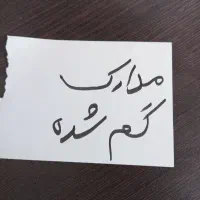 مدارک
گم شده